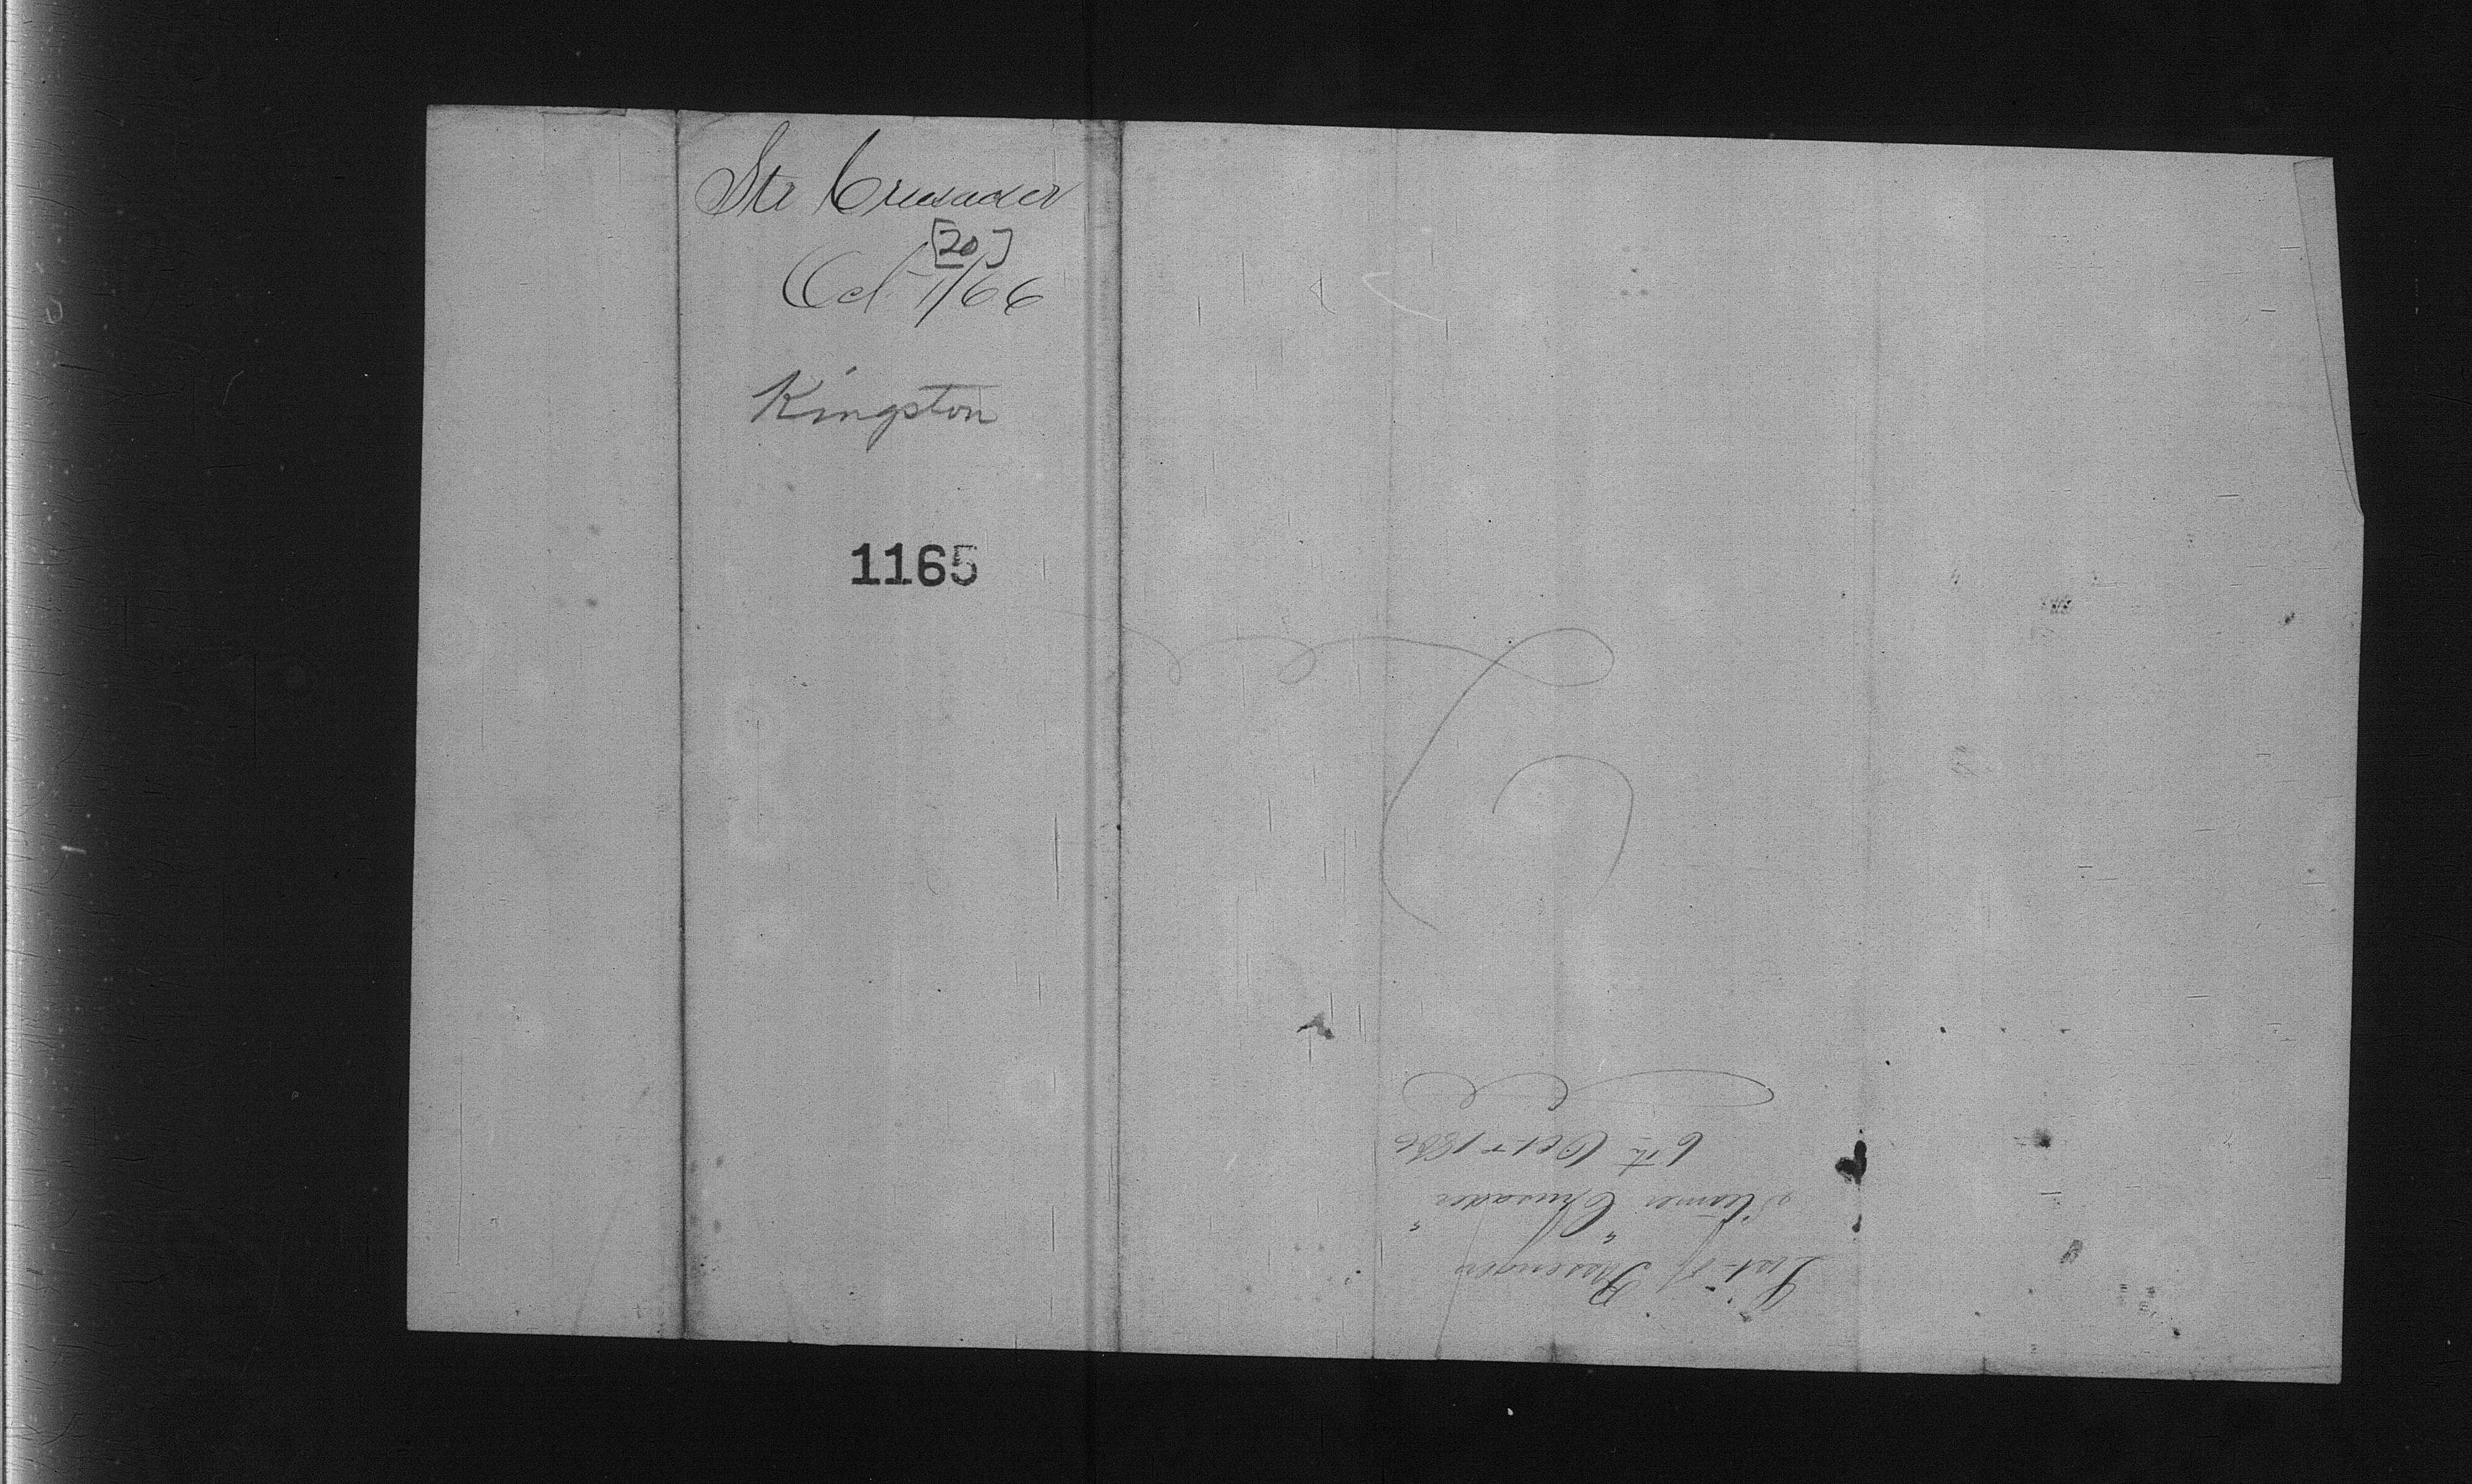 Str Crusader
[20]
Oct 1/66
Kingston
1165
List of Passengers
Steamer "Crusader"
6th Oct 1866